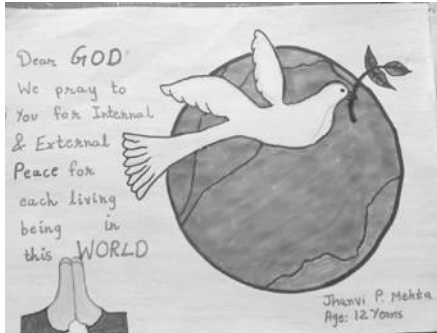 Dear GOD
We pray to
You for Internal
& External
Peace for
each living
being in
this WORLD
Jhanvi P. Mehta
Age: 12 Years